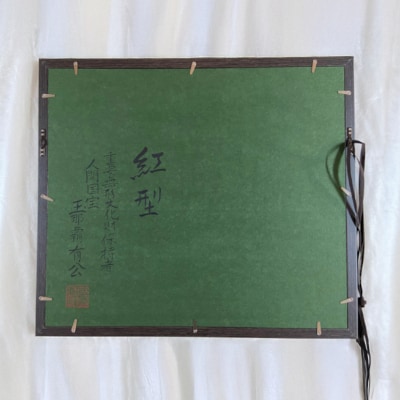 紅型
重要無形文化財保持者
人間国宝
玉那覇有公